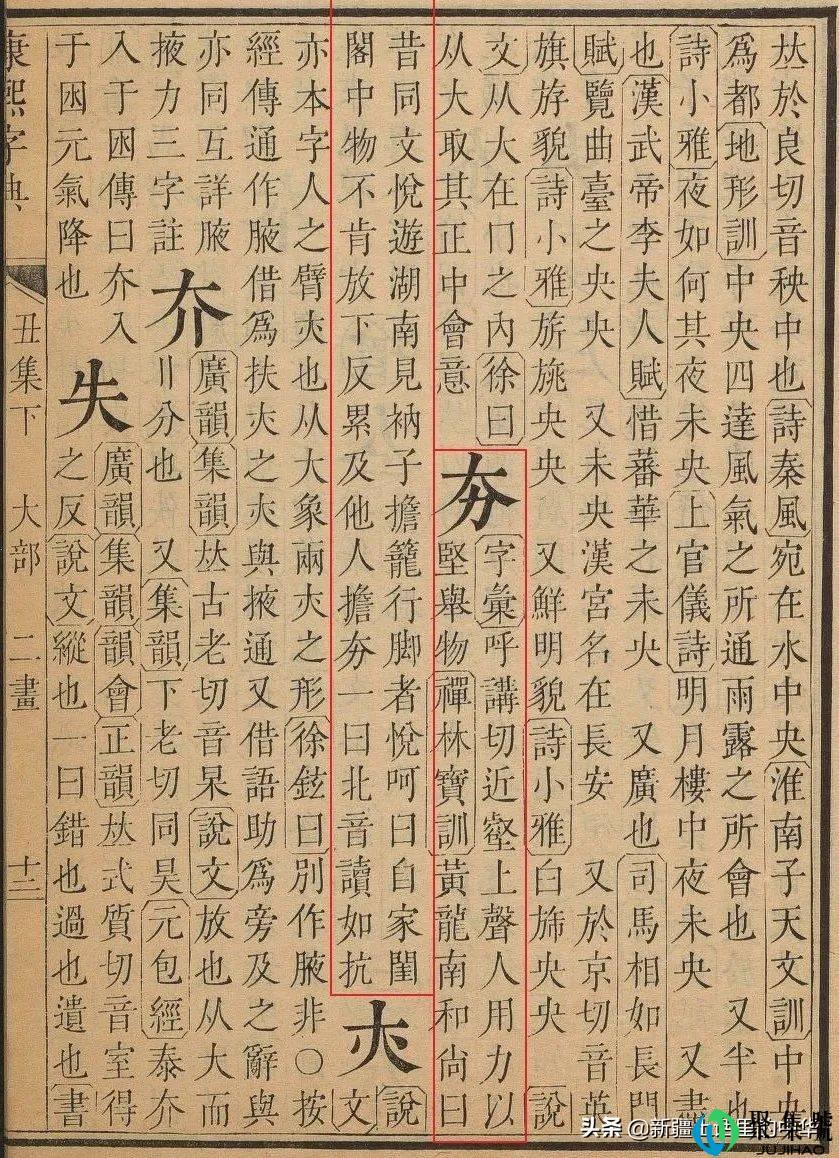 𠀤於良切音秧中也詩秦風宛在水中央淮南子天文訓中央
爲都地形訓中央四達風氣之所通雨露之所會也 又半也
詩小雅夜如何其夜未央上官儀詩明月樓中夜未央 又盡
也漢武帝李夫人賦惜蕃華之未央 又廣也司馬相如長門
賦覽曲臺之央央 又未央漢宮名在長安 又於京切音英
旗斿貌詩小雅旂旐央央 又鮮明貌詩小雅白斾央央 說
文从大在冂之內徐曰
从大取其正中會意
夯
字彙呼講切近壑上聲人用力以
堅舉物禪林寶訓黃龍南和尙曰
昔同文悅遊湖南見衲子擔籠行脚者悅呵曰自家閨
閣中物不肯放下反累及他人擔夯一曰北音讀如抗
𡗕
說
文
亦本字人之臂𡗕也从大象兩𡗕之形徐鉉曰別作腋非○按
經傳通作腋借爲扶𡗕之𡗕與掖通又借語助爲旁及之辭與
亦同互詳腋
掖力三字註
夰
廣韻集韻𠀤古老切音杲說文放也从大而
〢分也 又集韻下老切同昊元包經泰夰
入于囦傳曰夰入
于囦元氣降也
失
廣韻集韻韻會正韻𠀤式質切音室得
之反說文縱也一曰錯也過也遺也書
康熙字典
丑集下 大部 二畫 十三
头条 @新疆
聚集號
JUJIHAO